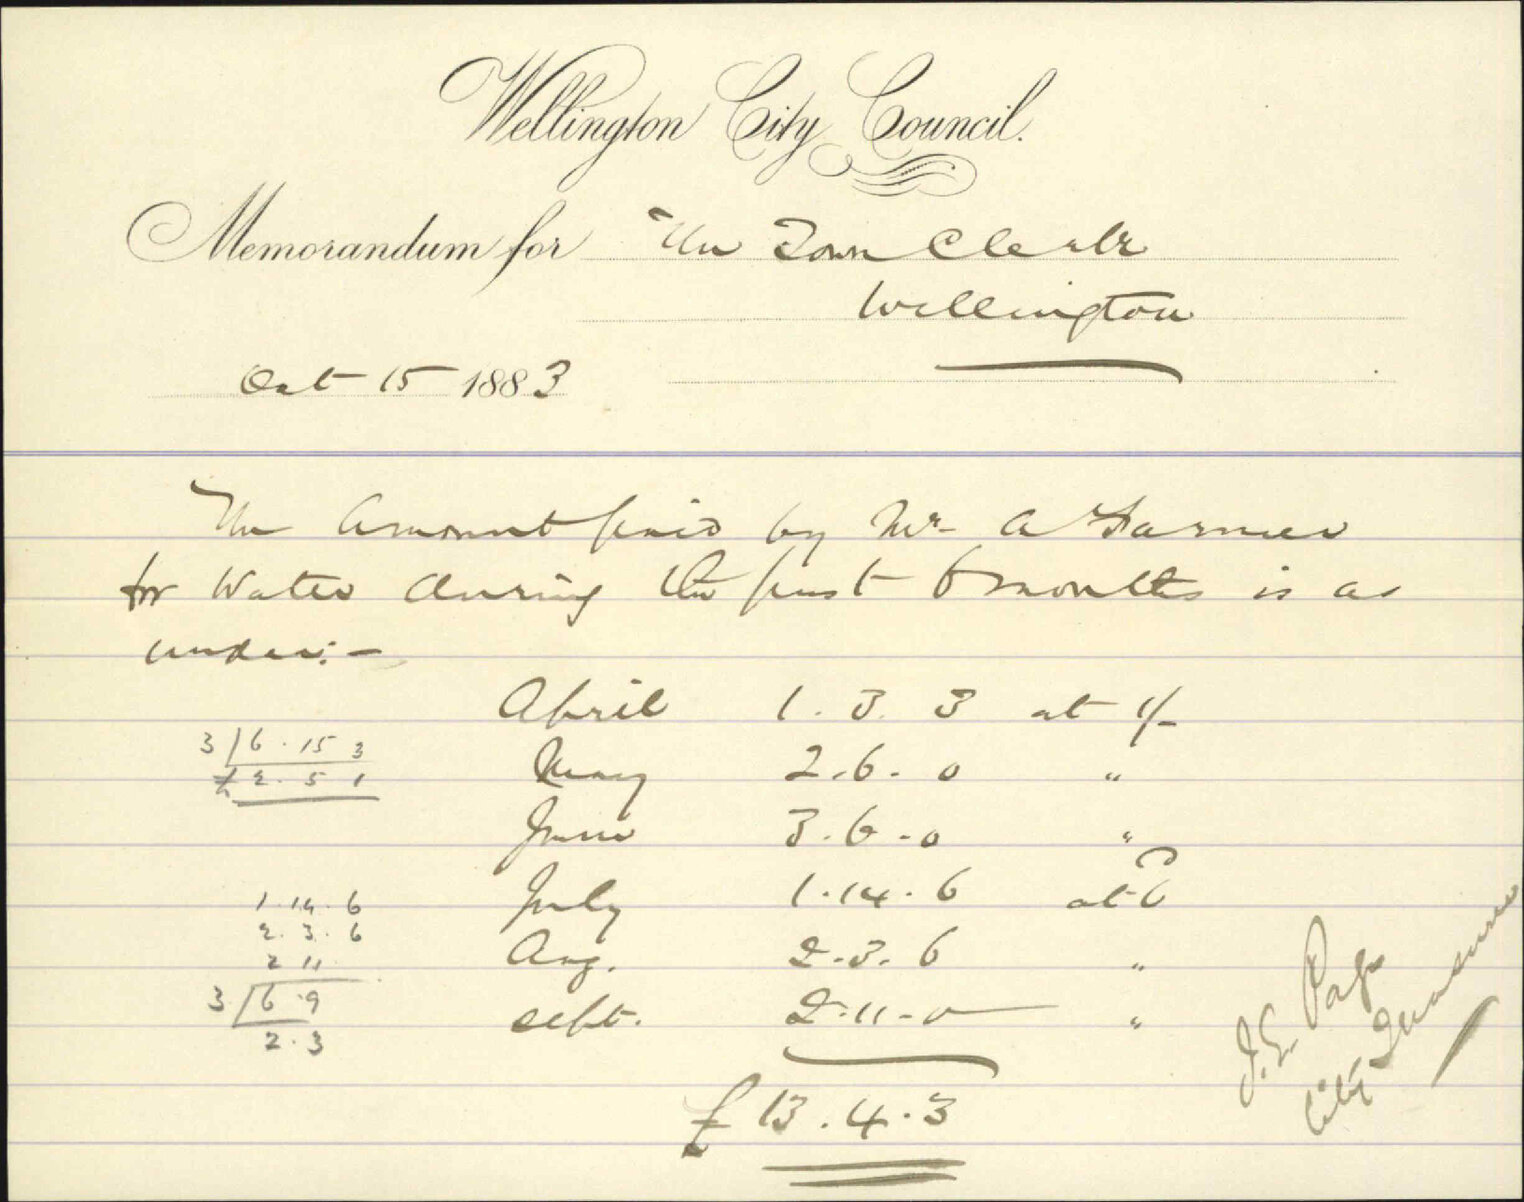 Wellington City Council.
Memorandum for The Town Clerk
Wellington
Oct 15 1883
The Amount paid by Mr A Farmer
for Water during the past 6 months is as
under:-
April 1. 3. 3 at 1/-
3 / 6 . 15 3
May 2. 6. 0 "
£ 2. 5 1
June 3. 6. 0 "
July 1. 14. 6 at 6
1. 14. 6
2. 3. 6
Aug. 2. 3. 6 "
2 11
3 / 6 . 9
Sept. 2. 11. 0 "
2. 3
£ 13. 4. 3
J. E. Page
City Treasurer